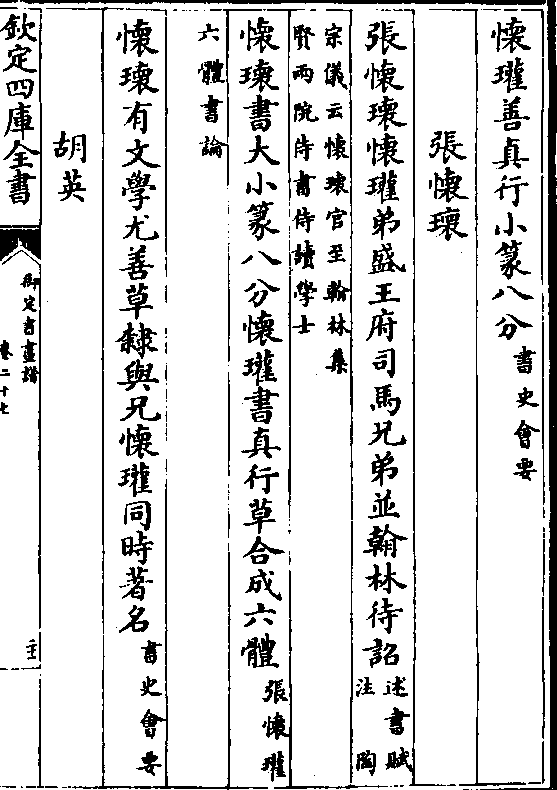 懷瓘善真行小篆八分書史會要
張懷瓌
張懷瓌懷瓘弟盛王府司馬兄弟並翰林待詔述書賦注陶
宗儀云懷瓌官至翰林集
賢兩院侍書侍讀學士
懷瓌書大小篆八分懷瓘書真行草合成六體張懷瓘
六體書論
懷瓌有文學尤善草隸與兄懷瓘同時著名書史會要
胡英
欽定四庫全書
御定書畫譜
卷二十七